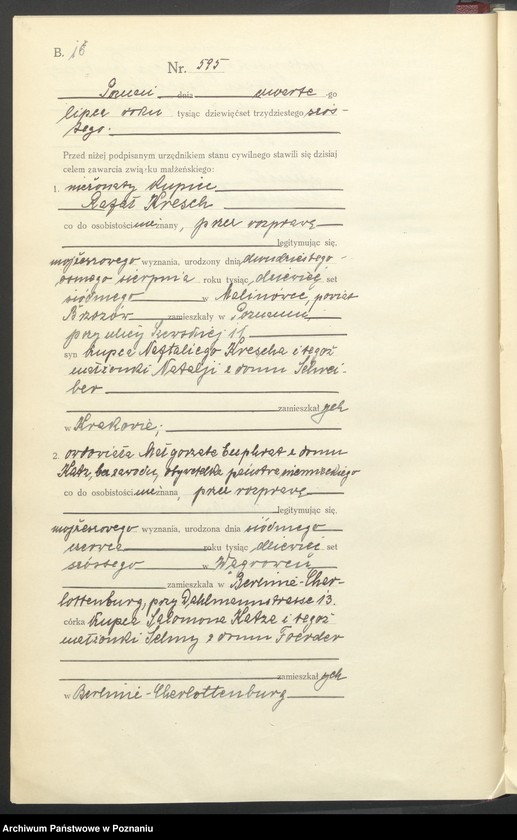 B. 16
Nr. 595
Poznań dnia czwarte -go
lipca roku tysiąc dziewięćset trzydziestego szós-
tego.
Przed niżej podpisanym urzędnikiem stanu cywilnego stawili się dzisiaj
celem zawarcia związku małżeńskiego:
1. nieżonaty kupiec
Rafał Kresch
co do osobistości nieznany, przez rozprawę
legitymując się,
mojżeszowego wyznania, urodzony dnia dwudziestego-
ósmego sierpnia roku tysiąc dziewięć set
siódmego w Malinówce, powiat
Brzozów zamieszkały w Poznaniu
przy ulicy Szewskiej 11
syn kupca Naftaliego Krescha i tegoż
małżonki Natalji z domu Schrei-
ber
zamieszkałych
w Krakowie;
2. owdowiała Małgorzata Euphrat z domu
Katz, bez zawodu, obywatelka państwa niemieckiego
co do osobistości nieznana, przez rozprawę
legitymując się.
mojżeszowego wyznania, urodzona dnia siódmego
czerwca roku tysiąc dziewięć set
szóstego w Wągrowcu
zamieszkała w Berlinie-Char-
lottenburg, przy Dahlmannstrasse 13.
córka kupca Salomona Katza i tegoż
małżonki Selmy z domu Foerder
zamieszkałych
w Berlinie-Charlottenburg
Archiwum Państwowe w Poznaniu